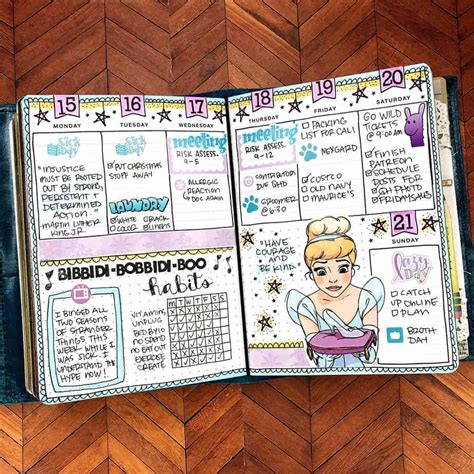 15
MONDAY
16
TUESDAY
17
WEDNESDAY
Sick
Day
"INJUSTICE
MUST BE ROOTED
OUT BY STRONG,
PERSISTENT &
DETERMINED
ACTION."
MARTIN LUTHER
KING JR.
Sick
Day
PUT CHRISTMAS
STUFF AWAY
LAUNDRY
WHITE BLACK
COLOR LINENS
meeting
RISK ASSESS.
9-5
ALLERGIC
REACTION
DOC AGAIN
BIBBIDI-BOBBIDI-BOO
habits
I BINGED ALL
TWO SEASONS
OF STRANGER
THINGS THIS
WEEK WHILE I
WAS SICK. I
UNDERSTAND THE
HYPE NOW!
M T W T F S S
VITAMINS
UNPLUG
BED BY 10
NO SPEND
NO EAT OUT
EXERCISE
CREATE
18
THURSDAY
19
FRIDAY
20
SATURDAY
meeting
RISK ASSESS.
9-12
CONTRIBUTOR
DUE
GROOMER
@ 6:30
PACKING
LIST FOR CALI
NEXGARD
COSTCO
OLD NAVY
MAURICE'S
GO WILD
TICKETS
@ 9:00 AM
FINISH
PATREON
SCHEDULE
POSTS FOR
PHOTO
21
SUNDAY
"HAVE
COURAGE
AND
BE KIND."
lazy
DAY
CATCH
UP ONLINE
PLAN
BROTH
DAY